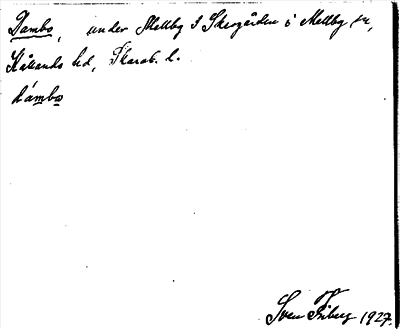 Dambo, under Mellby I Skorgården i Mellby sn,
Kållands hd, Skarab. l.
dámbo
Sven Friberg 1927.